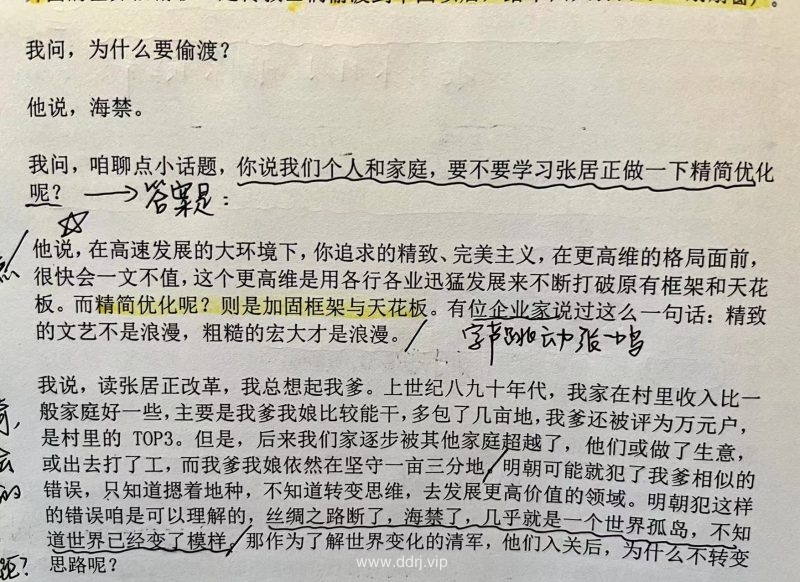 我问，为什么要偷渡？
他说，海禁。
我问，咱聊点小话题，你说我们个人和家庭，要不要学习张居正做一下精简优化
呢？ → 答案是：
他说，在高速发展的大环境下，你追求的精致、完美主义，在更高维的格局面前，
很快会一文不值，这个更高维是用各行各业迅猛发展来不断打破原有框架和天花
板。而精简优化呢？则是加固框架与天花板。有位企业家说过这么一句话：精致
的文艺不是浪漫，粗糙的宏大才是浪漫。
字节跳动张一鸣
我说，读张居正改革，我总想起我爹。上世纪八九十年代，我家在村里收入比一
般家庭好一些，主要是我爹我娘比较能干，多包了几亩地，我爹还被评为万元户，
是村里的 TOP3。但是，后来我们家逐步被其他家庭超越了，他们或做了生意，
或出去打了工，而我爹我娘依然在坚守一亩三分地，明朝可能就犯了我爹相似的
错误，只知道摁着地种，不知道转变思维，去发展更高价值的领域。明朝犯这样
的错误咱是可以理解的，丝绸之路断了，海禁了，几乎就是一个世界孤岛，不知
道世界已经变了模样。那作为了解世界变化的清军，他们入关后，为什么不转变
思路呢？
www.ddrj.vip